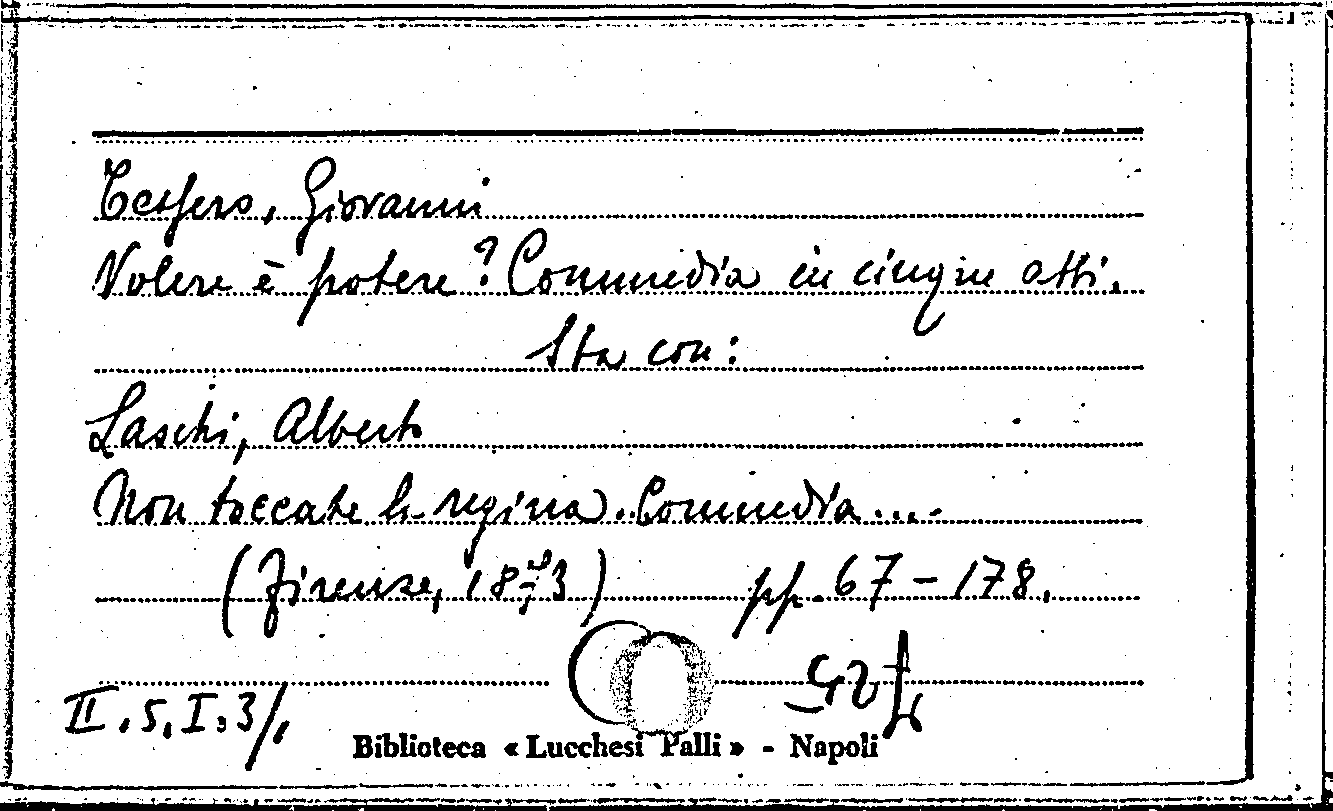 Tessero, Giovanni
Volere è potere? Commedia in cinque atti.
Sta con:
Laschi, Alberto
Non toccate la regina. Commedia....
(Firenze, 1873) pp. 67-178.
II.5.I.3/.
Biblioteca « Lucchesi Palli » - Napoli